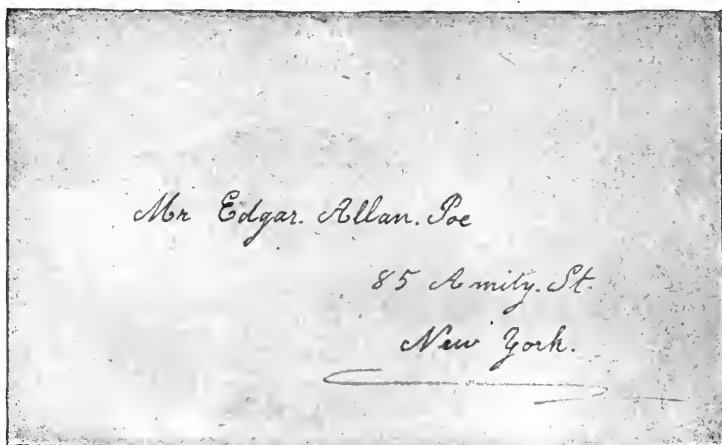 Mr Edgar. Allan. Poe
85 Amity. St.
New York.